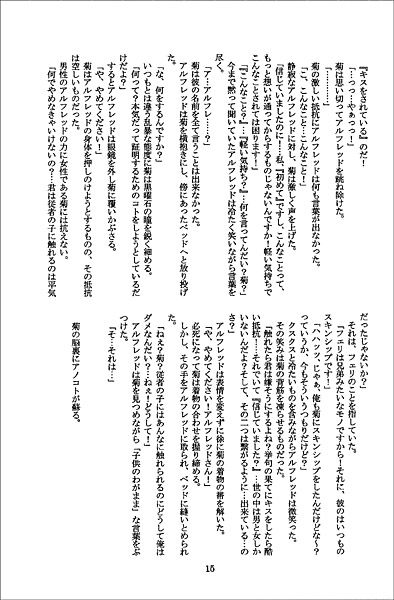 『キスをされている』のだ！
「…っっ…やぁっっ！」
菊は思い切ってアルフレッドを跳ね除けた。
「…………」
菊の激しい抵抗にアルフレッドは何も言葉が出なかった。
「こ、こんなこと…こんなこと！」
静寂なアルフレッドに対し、菊は激しく声を上げた。
「信じていましたのに……私『初めて』ですし、こんなことって、
もっと想いが通ってからするものじゃないんですか！軽い気持ちで
こんなことされては困ります！」
「『こんなこと？』…『軽い気持ち？』…何を言ってんだい？菊？」
今まで黙って聞いていたアルフレッドは冷たく笑いながら言葉を
尽く。
「ア…アルフレ……？」
菊は彼の名前を全て言うことは出来なかった。
アルフレッドは菊を横抱きにし、傍にあったベッドへと放り投げ
た。
「な、何をするんですか？」
いつもとは違う乱暴な態度に菊は黒曜石の瞳を鋭く細める。
「何って？本気だって証明するためのコトをしようとしているだ
けだよ？」
するとアルフレッドは眼鏡を外し菊に覆いかぶさる。
「や、やめてください！」
菊はアルフレッドの身体を押しのけようとするものの、その抵抗
は空しいものだった。
男性のアルフレッドの力に女性である菊には抗えない。
「何でやめなきゃいけないの？…君は従者の子に触れるのは平気
だったじゃないか？」
それは、フェリのことを指していた。
「フェリは兄弟みたいなモノですから！それに、彼のはいつもの
スキンシップです！」
「ハハッツ、じゃぁ、俺も菊にスキンシップをしたんだけどな～？
っていうか、今もそういうつもりだけど？」
クスクスと冷たいものを含みながらアルフレッドは微笑った。
その笑みは菊の背筋を凍らせるものだった。
「触れたら君は嫌そうにするよね？挙句の果てにキスをしたら酷
い抵抗！…それでいて『信じていました？』…世の中は男と女しか
いないんだよ？そして、その二つは繋がるように…出来ている…の
さ？」
アルフレッドは表情を変えずに徐に菊の着物の帯を解いた。
「や、やめてください！アルフレッドさん！」
必死になって菊は着物の合わせを握り締める。
しかし、その手をアルフレッドに取られ、ベッドに縫いとめられ
た。
「ねぇ？菊？従者の子にはあんなに触れられるのにどうして俺は
ダメなんだい？…ねぇ！どうして！」
アルフレッドは菊を見つめながら「子供のわがまま」な言葉をぶ
つけた。
「そ…それは…」
菊の脳裏にアノコトが蘇る。
15